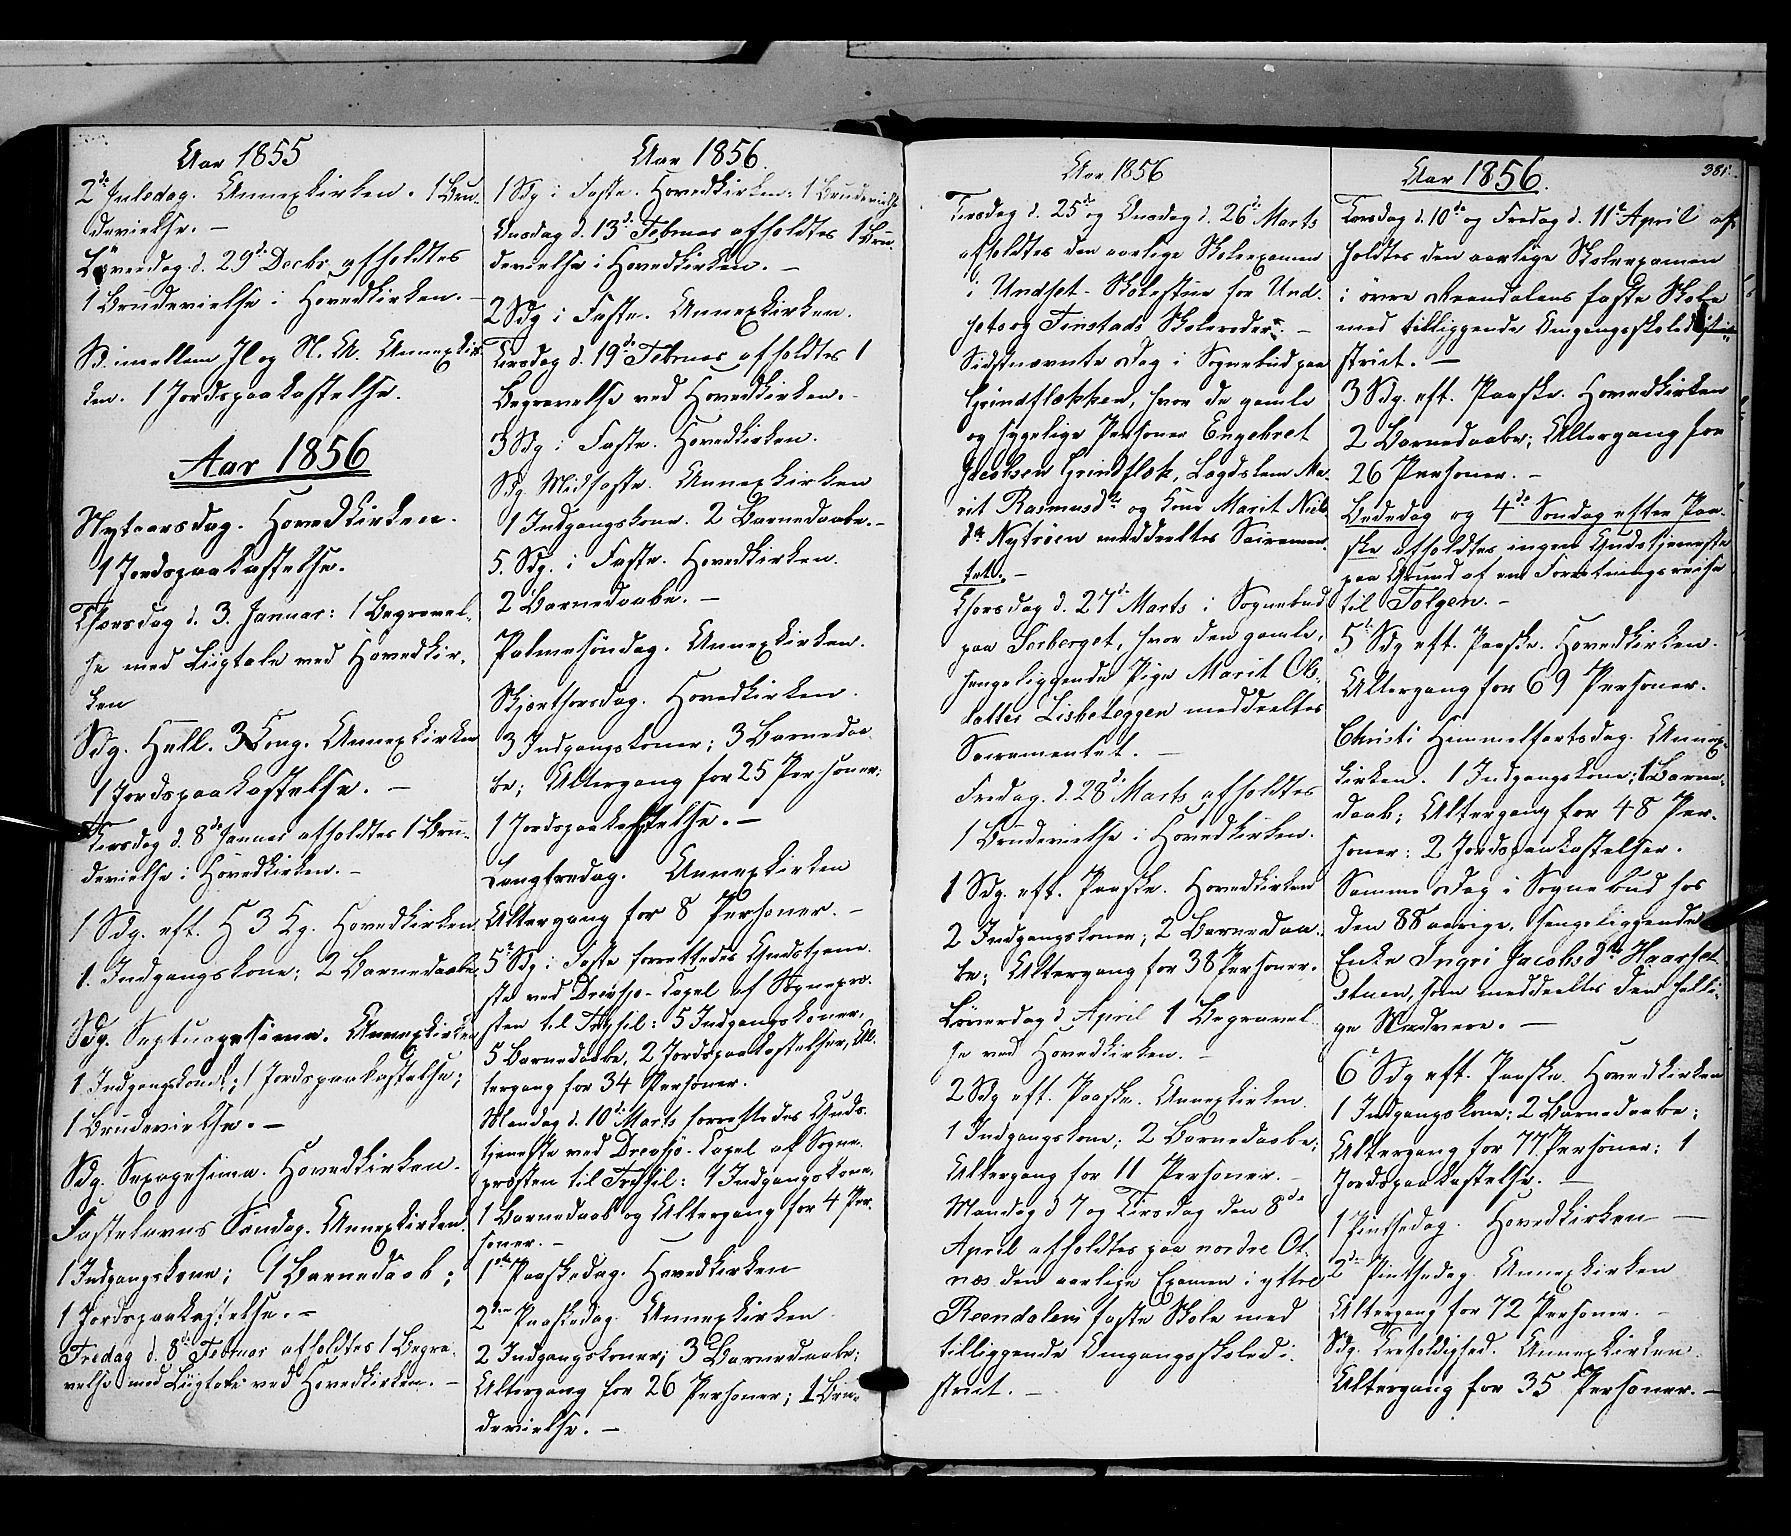 Aar 1855
2de Juledag. Annexkirken. 1 Bru-
devielse. —
Løverdag d. 29de Decbr. afholdtes
1 Brudevielse i Hovedkirken. —
Sd. imellem Jl og N. A. Annexkir-
ken. 1 Jordspaakastelse.
Aar 1856
Nytaarsdag. Hovedkirken.
1 Jordspaakastelse.
Thorsdag d. 3. Januar: 1 Begravel-
se med Liigtale ved Hovedkir-
ken
Sdg. Hell. 3 Kong. Annexkirken
1 Jordspaakastelse. —
Tirsdag d. 8de Januar afholdtes 1 Bru-
devielse i Hovedkirken. —
1 Sdg. eft. H 3 Kg. Hovedkirken
1. Indgangskone; 2 Barnedaabe.
Sdg. Septuagesima. Annexkirken
1 Indgangskone; 1 Jordspaakastelse;
1 Brudevielse. —
Sdg. Sexagesima. Hovedkirken.
Fastelavns Søndag. Annexkirken.
1 Indgangskone; 1 Barnedaab;
1 Jordspaakastelse. —
Fredag d. 8de Februar afholdtes 1 Begra-
velse med Liigtale ved Hovedkirken. —
Aar 1856.
1 Sdg i Faste. Hovedkirken: 1 Brudevielse
Onsdag d. 13de Februar afholdtes 1 Bru-
devielse i Hovedkirken. —
2 Sdg i Faste. Annexkirken.
Tirsdag d. 19de Februar afholdtes 1
Begravelse ved Hovedkirken. —
3 Sdg i Faste. Hovedkirken.
Sdg Midfaste. Annexkirken
1 Indgangskone. 2 Barnedaabe. —
5. Sdg. i Faste. Hovedkirken.
2 Barnedaabe. —
Palmesøndag. Annexkirken.
Skjærthorsdag. Hovedkirken.
3 Indgangskoner; 3 Barnedaa-
be; Altergang for 25 Personer;
1 Jordspaakastelse. —
Langfredag. Annexkirken
Altergang for 8 Personer. —
5te Sdg i Faste forrettedes Gudstjene-
ste ved Drevsjø-Capel af Sognepre-
sten til Trysil: 5 Indgangskoner,
5 Barnedaabe, 2 Jordspaakastelser, Al-
tergang for 34 Personer.
Mandag d. 10de Marts forrettedes Guds-
tjeneste ved Drevsjø-Capel af Sogne-
præsten til Trysil: 1 Indgangskone,
1 Barnedaab og Altergang for 4 Per-
soner. —
1ste Paaskedag. Hovedkirken
2den Paaskedag Annexkirken
2 Indgangskoner; 3 Barnedaabe;
Altergang for 26 Personer; 1 Bru-
devielse. —
Aar 1856
Tirsdag d. 25de og Onsdag d. 26de Marts
afholdtes den aarlige Skoleexamen
i Undset-Skolestue for Und-
set og Finstads Skoleroder. —
Sidstnævnte Dag i Sognebud paa
Grindflækken, hvor de gamle
og sygelige Personer Engebret
Jacobsen Grindflæk, Lægdslem Ma-
rit Rasmusdtr og Kone Marit Niels-
dtr Nytrøen meddeeltes Sacramen-
tet. —
Thorsdag d. 27de Marts i Sognebud
paa Sorberget, hvor den gamle,
sengeliggende Pige Marit Ols-
datter Lisbeteggen meddeeltes
Sacramentet. —
Fredag. d. 28de Marts afholdtes
1 Brudevielse i Hovedkirken.
1 Sdg. eft. Paaske. Hovedkirken
2 Indgangskoner; 2 Barnedaa-
be; Altergang for 38 Personer.
Løverdag d April 1 Begravel-
se ved Hovedkirken. —
2 Sdg eft. Paaske. Annexkirken.
1 Indgangskone; 2 Barnedaabe;
Altergang for 11 Personer. —
Mandag d 7 og Tirsdag den 8de
April afholdtes paa nordre Ot-
næs den aarlige Examen i yttre
Reendalens faste Skole med
tilliggende Omgangsskoledi-
strict. —
381.
Aar 1856.
Torsdag d. 10de og Fredag d. 11te April af-
holdtes den aarlige Skoleexamen
i øvre Reendalens faste Skole
med tilliggende Omgangsskoledi-
strict. —
3 Sdg. eft. Paaske. Hovedkirken
2 Barnedaabe; Altergang for
26 Personer. —
Bededag og 4de Søndag efter Paa-
ske afholdtes ingen Gudstjeneste
paa Grund af en Forretningsreise
til Tolgen. —
5te Sdg eft. Paaske. Hovedkirken.
Altergang for 69 Personer.
Christi Himmelfartsdag. Annex-
kirken. 1 Indgangskone; 1 Barne-
daab; Altergang for 48 Per-
soner; 2 Jordspaakastelser.
Samme Dag i Sognebud hos
den 88 aarige, sengeliggende
Enke Ingri Jacobsdtr Haarset-
stuen, som meddeeltes den helli-
ge Nadvere. —
6te Sdg eft. Paaske. Hovedkirken
1 Indgangskone; 2 Barnedaabe;
Altergang for 77 Personer; 1
Jordspaakastelse. —
1 Pintsedag. Hovedkirken —
2den Pintsedag. Annexkirken
Altergang for 72 Personer. —
Sdg. Trefoldighed. Annexkirken.
Altergang for 35 Personer. —